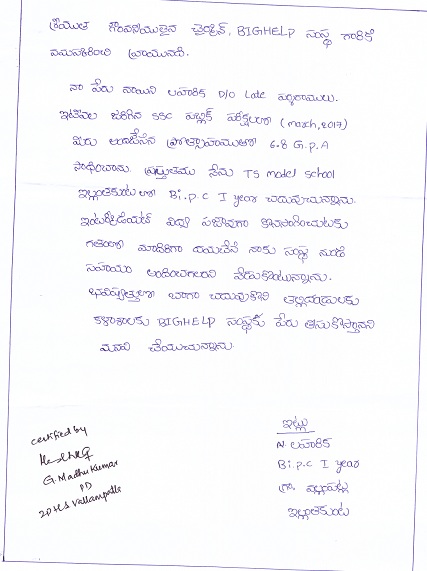 శ్రీయుత గౌరవనీయులైన చైర్మన్, BIGHELP సంస్థ గారికి
నమస్కరించి వ్రాయునది.
నా పేరు నాయిని లహరిక D/O Late
ఇటీవల జరిగిన SSC పబ్లిక్ పరీక్షలలో (march, 2017)
మీరు అందజేసిన ప్రోత్సాహముతో 6.8 G.P.A
సాధించాను. ప్రస్తుతము నేను TS model school
ఇల్లంతకుంట లో Bi.p.c I year చదువుచున్నాను.
ఇంటర్మీడియట్ విద్య సజావుగా కొనసాగించుటకు
గతంలో మాదిరిగా దయచేసి నాకు సంస్థ నుండి
సహాయం అందించగలరని వేడుకొంటున్నాను.
భవిష్యత్తులో బాగా చదువుకొని తల్లిదండ్రులకు
కళాశాలకు BIGHELP సంస్థకు పేరు తీసుకొస్తానని
మనవి చేయుచున్నాను.
ఇట్లు
N. లహరిక
Bi.p.c I year
గ్రా. వల్లంపట్ల
ఇల్లంతకుంట
certified by
G. Madhu Kumar
PD
ZPHS Vallampatla